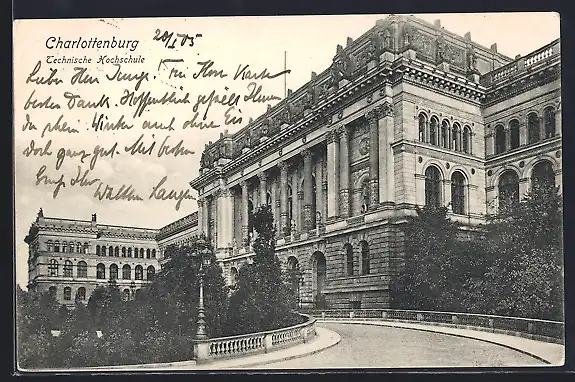 Charlottenburg
Technische Hochschule
20/I 05
Lieber Herr Jung. Für Ihre Karte
besten Dank. Hoffentlich gefällt Ihnen
der Winter auch ohne
doch ganz gut. Mit besten
Walter Lange